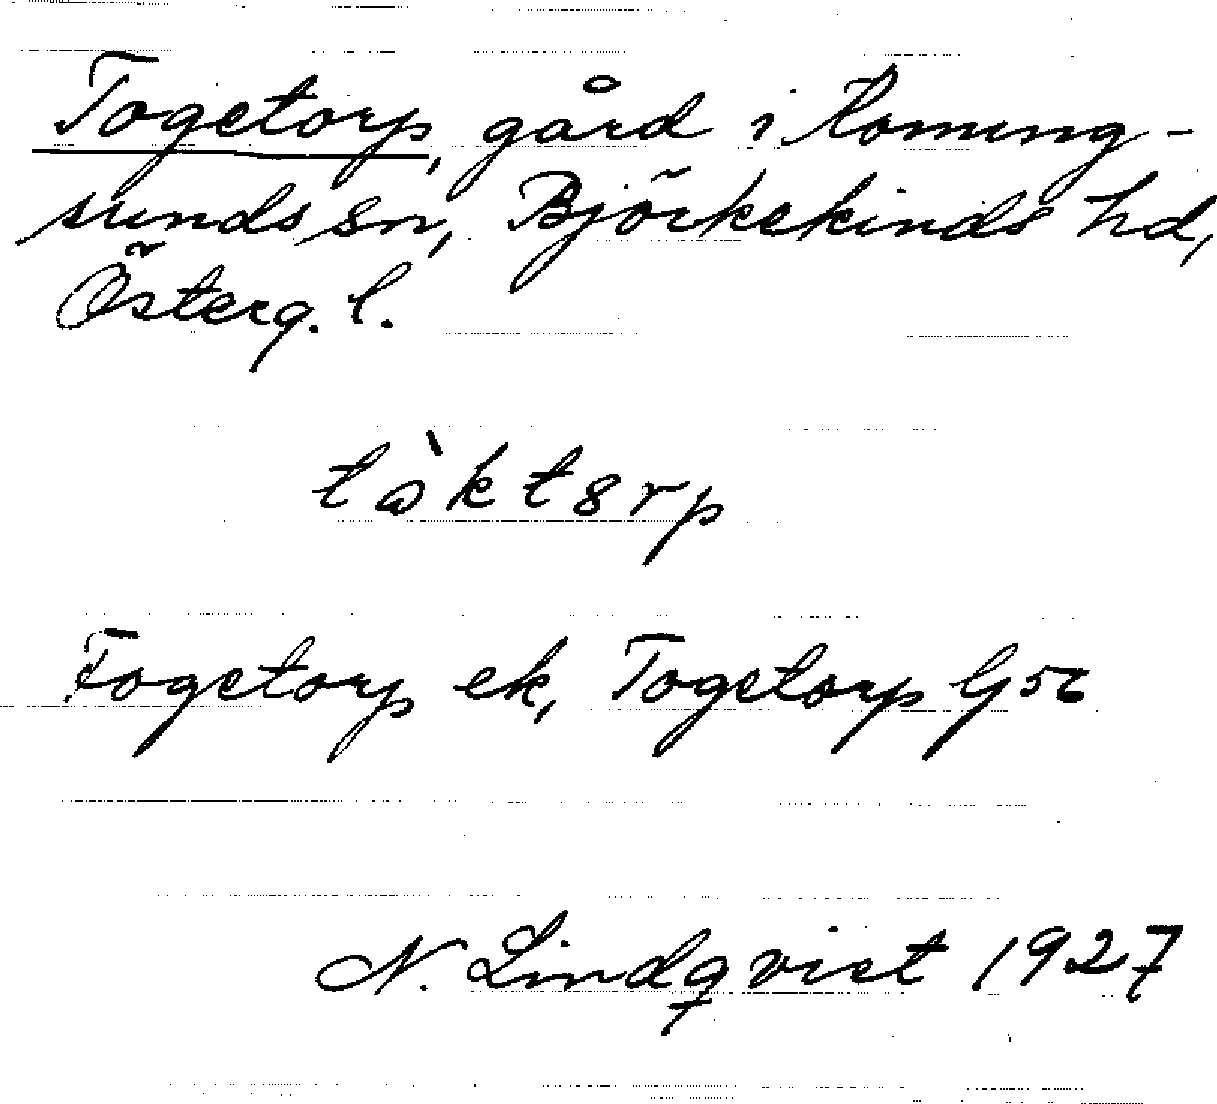 Togetorp, gård i Konung-
sunds sn, Björkekinds hd,
Österg. l.
tàktɞrp
Fogetorp ek, Togetorp G 56
N. Lindqvist 1927